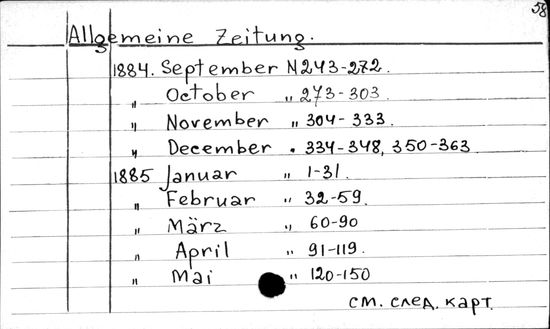 58
Allgemeine Zeitung.
1884. September N 243-272.
„ October „ 273-303
„ November „ 304-333.
„ December „ 334-348, 350-363
1885 Januar „ 1-31.
„ Februar „ 32-59.
„ März „ 60-90
„ April „ 91-119.
„ Mai „ 120-150
см. след. карт.